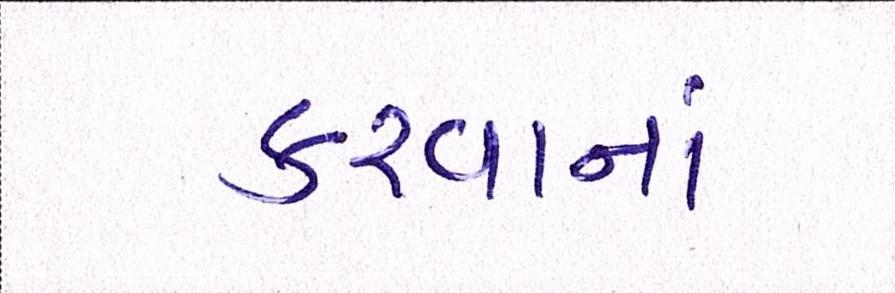 કરવાનાં